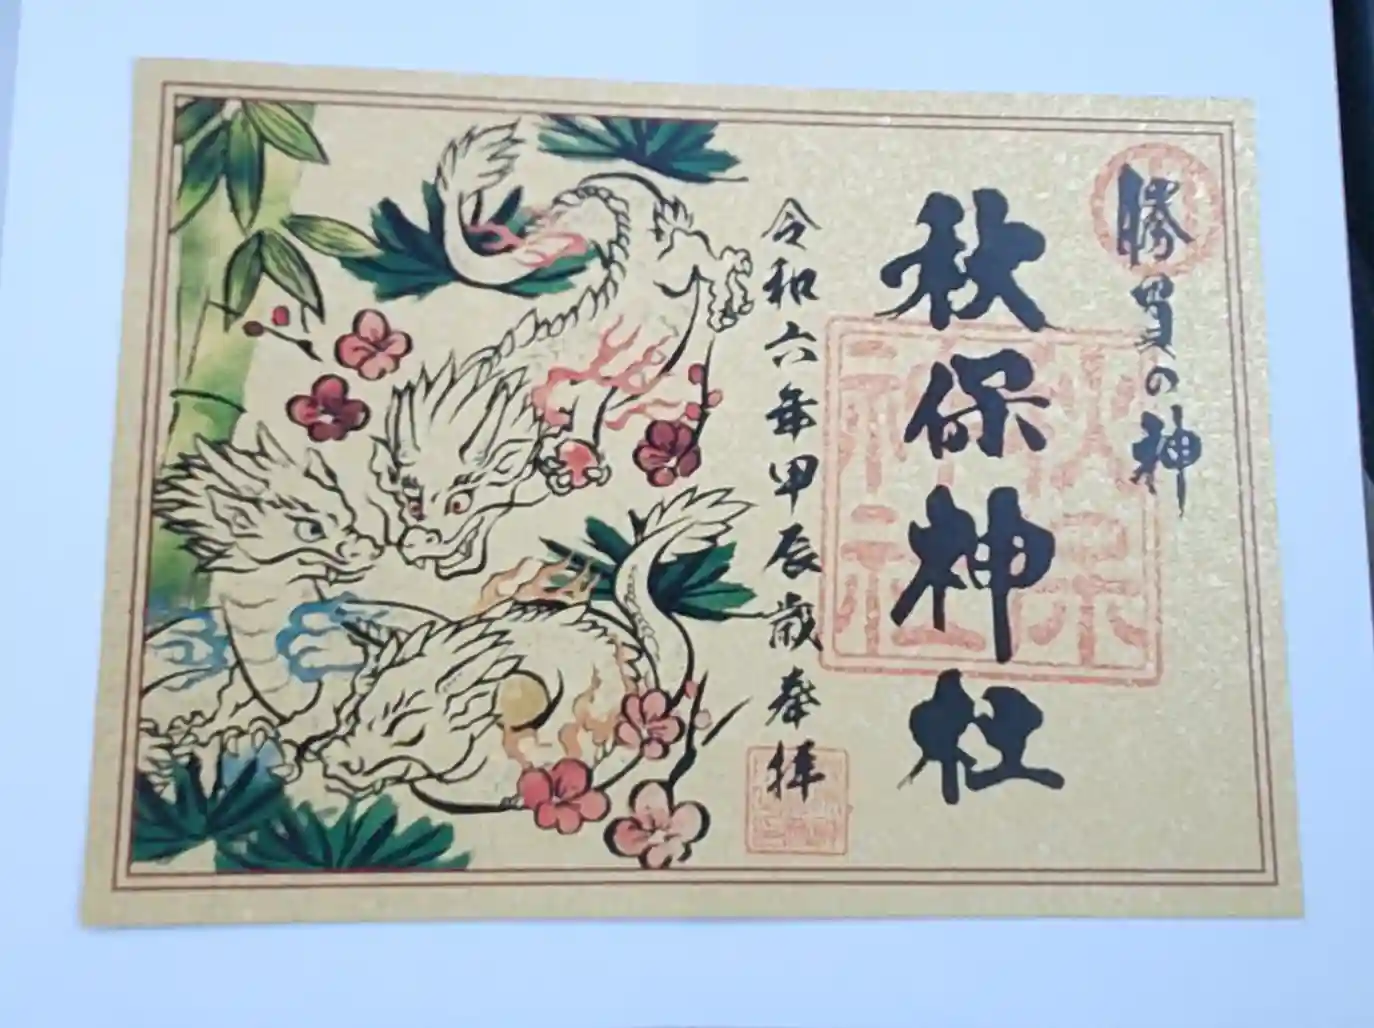 勝負の神
秋保神社
令和六年甲辰歳奉拝
秋保
神社